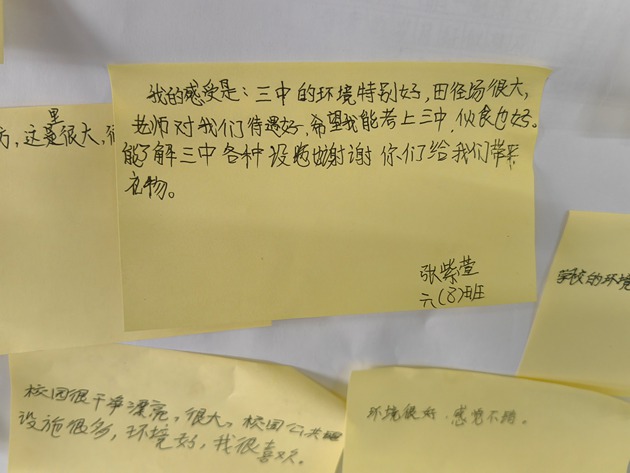 我的感受是：三中的环境特别好，田径场很大，
老师对我们待遇好，希望我能考上三中，伙食也好。
能了解三中各种设施，谢谢你们给我们带来
礼物。
张紫萱
六(8)班
里
方，这是很大，很
学校的环境
校园很干净漂亮，很大，校园公共
设施很多，环境好，我很喜欢。
环境很好，感觉不错。